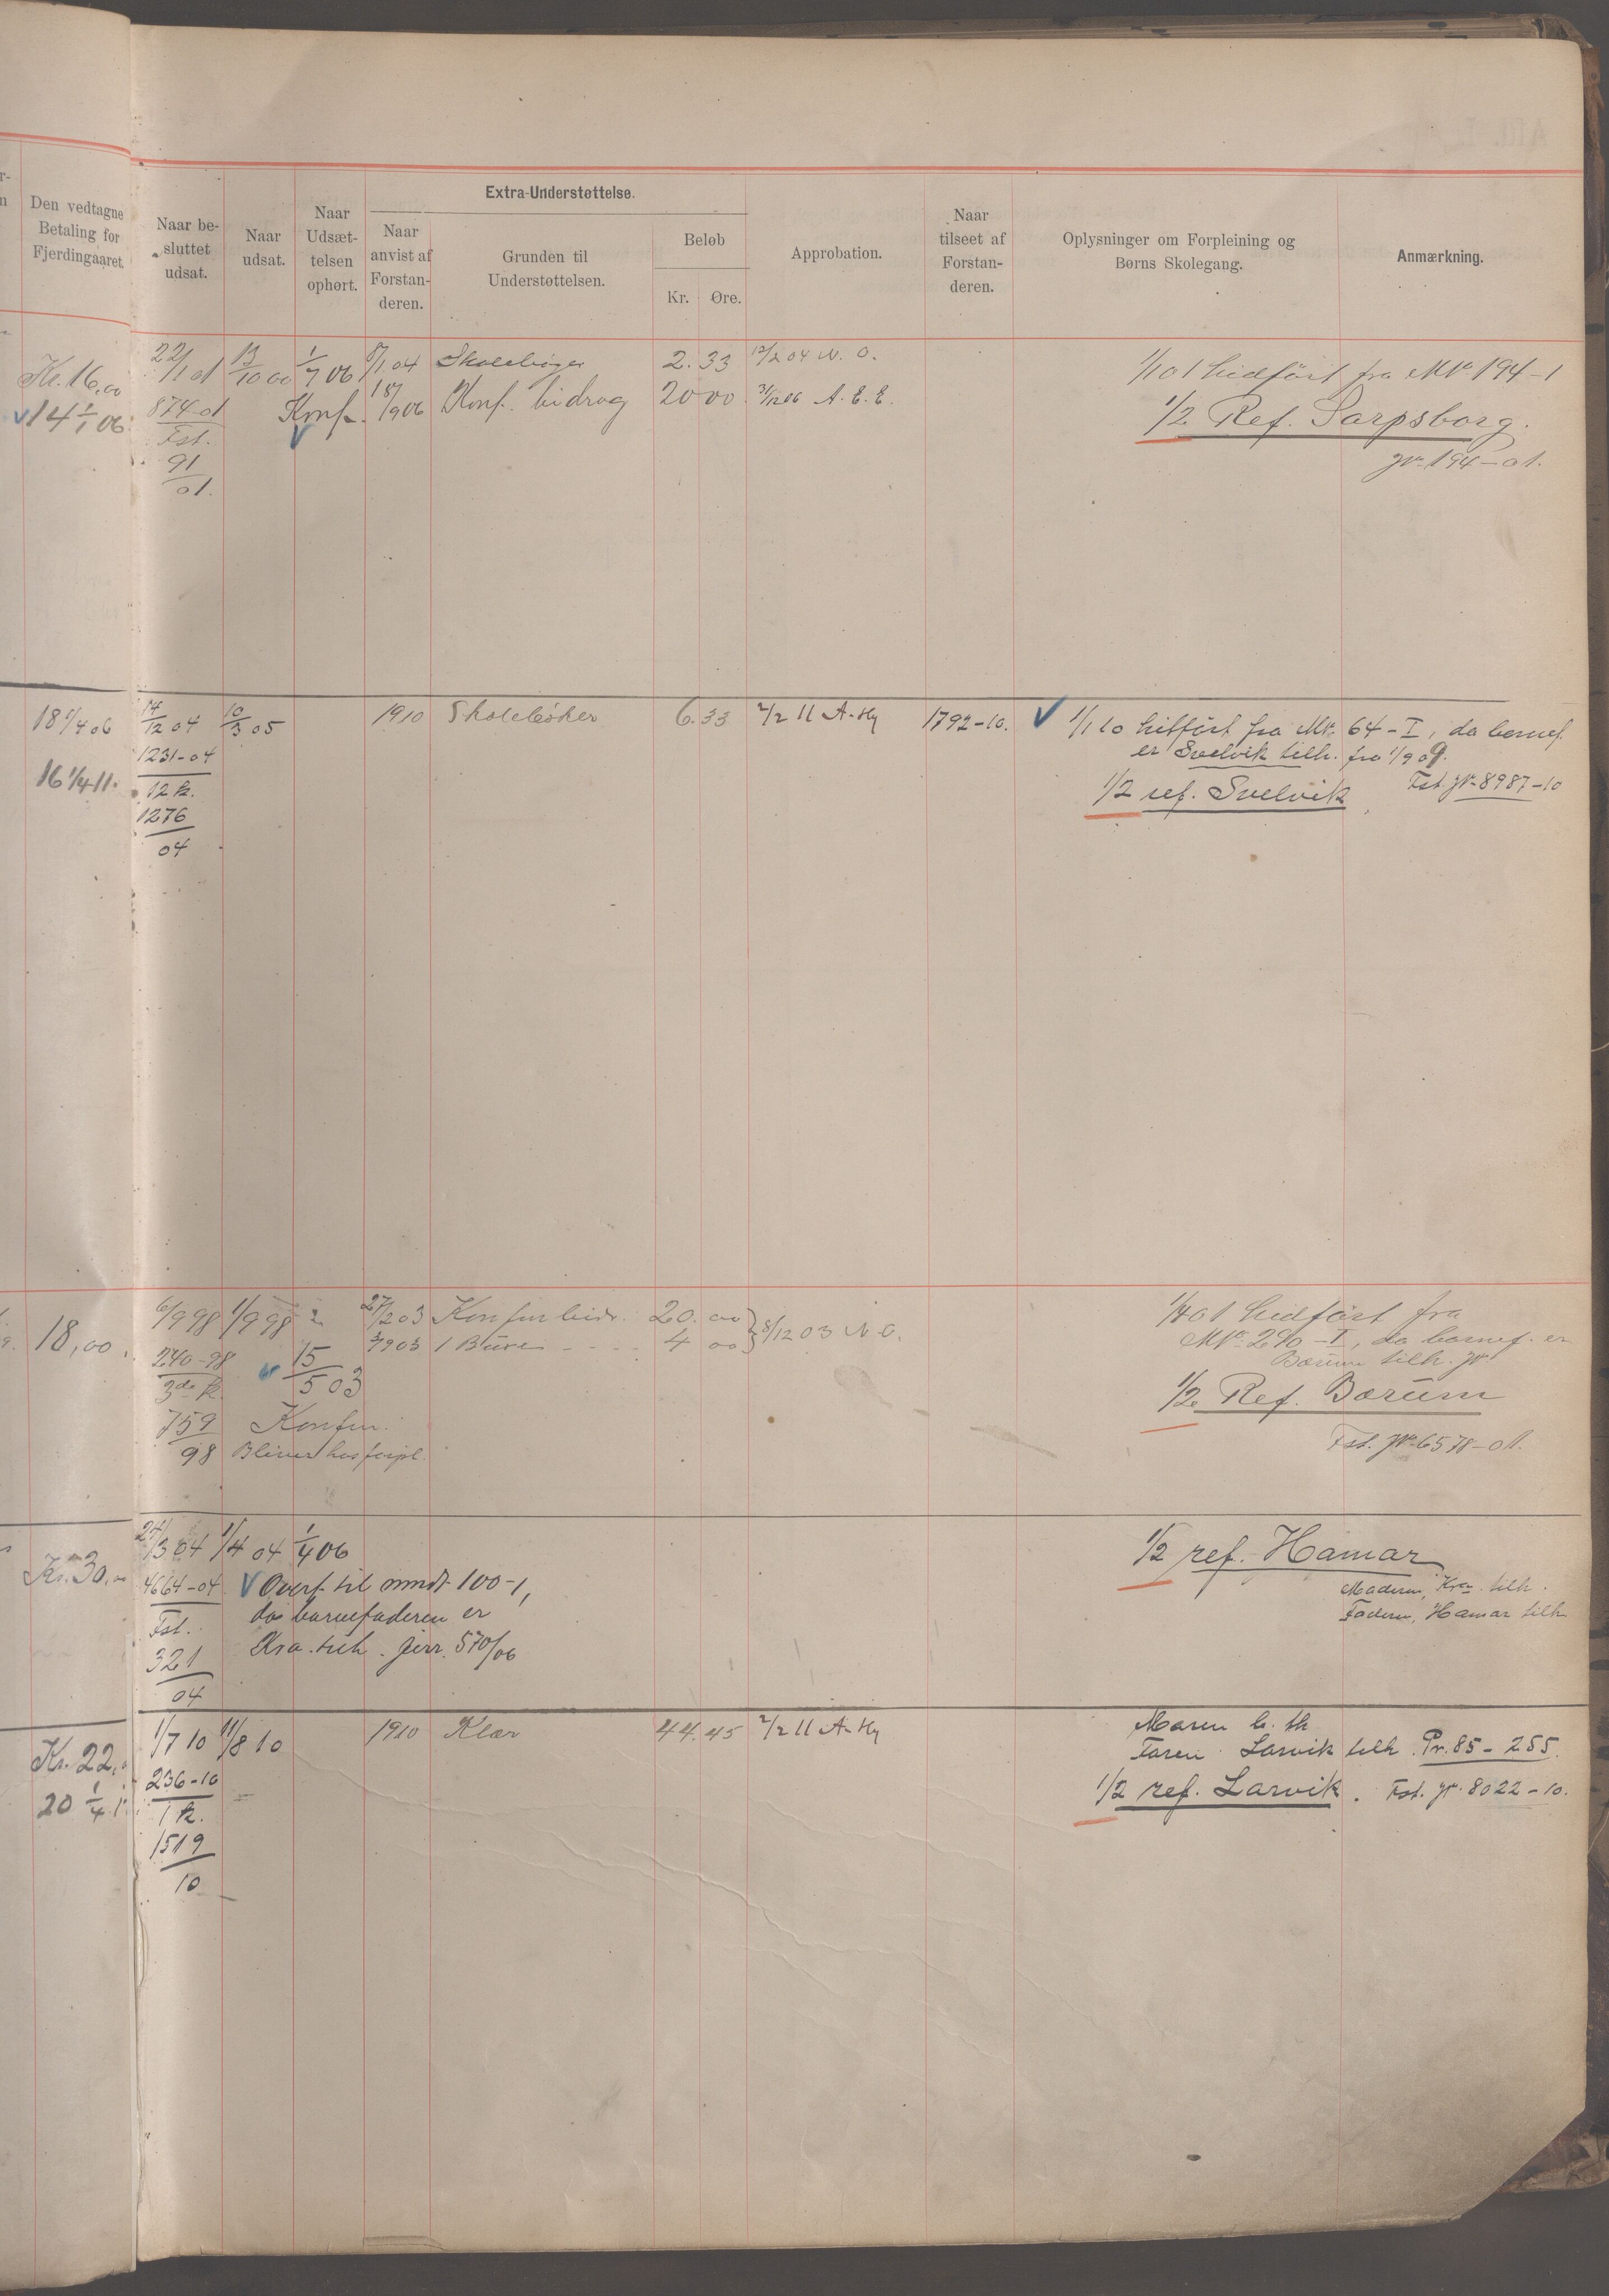 Den vedtagne
Betaling for
Fjerdingaaret.
Naar be-
sluttet
udsat.
Naar
udsat.
Naar
Udsæt-
telsen
ophørt.
Extra-Understøttelse.
Naar
anvist af
Forstan-
deren.
Grunden til
Understøttelsen.
Beløb
Kr. Øre.
Approbation.
Naar
tilseet af
Forstan-
deren.
Oplysninger om Forpleining og
Børns Skolegang.
Anmærkning.
Kr. 16,00
14 1/1 06
22/1 01 13/10 00 1/7 06 8/1 04 Skolebøger 2.33 12/2 04 N. O.
874-01 Konf. 18/9 06 Konf. bidrag 20 00 31/12 06 A. E. E.
Fst.
91
01.
1/1 01 hidført fra Mt. 194-1
1/2 Ref. Sarpsborg.
jr. 194-01.
18 1/4 06
16 1/4 11.
14/12 04 10/3 05 1910 Skolebøker 6.33 2/2 11 A-Hy 1792-10.
1231-04
12 k.
1276
04
1/1 10 hitført fra Mt. 64-I, da barnef.
er Svelvik tilh. fra 1/9 09.
1/2 ref. Svelvik Fst. jr. 8987-10
18,00
6/9 98 1/9 98 27/2 03 Konfm bidr. 20.00 8/12 03 N. O.
240-98 15/5 03 1 Buxe 4 00
3de k.
759 Konfm.
98 Bliver hos forpl.
1/4 01 hidført fra
Mt. 290-I, da barnef. er
Bærum tilh. jr.
1/2 Ref. Bærum
Fst. jr. 6578-01.
Kr. 30.
24/3 04 1/4 04 1/4 06
4664-04 Overf til mndt 100-1,
Fst. da barnefaderen er
321 Kra. tilh. jerr. 570/06
04
1/2 ref. Hamar
Moderen, Kra tilh.
Faderen, Hamar tilh
Kr. 22,
20 1/4 1
1/7 10 11/8 10 1910 Klær 44.45 2/2 11 A-Hy
236-10
1 k.
1519
10
Maren h. th
Faren Larvik tilh. Pr. 85-255.
1/2 ref. Larvik. Fst. jr. 8022-10.